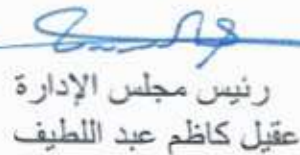 رئيس مجلس الإدارة
عقيل كاظم عبد اللطيف